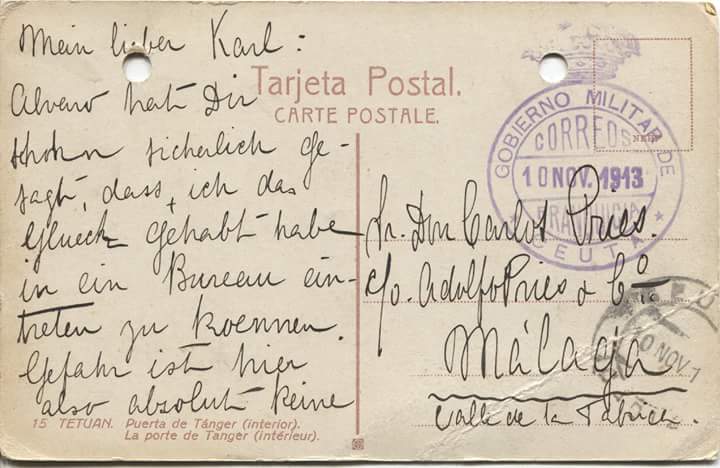 Mein lieber Karl:
Alvaro hat Dir
schon sicherlich ge-
sagt, dass, ich das
Glueck gehabt habe
in ein Bureau ein-
treten zu koennen.
Gefahr ist hier
also absolut keine
Tarjeta Postal.
CARTE POSTALE.
GOBIERNO MILITAR DE
CORREOS
10 NOV. 1913
FRANQUICIA
CEUTA
Sr. Don Carlos Pries.
c/o. Adolfo Pries & Cº
Málaga
Calle de la Fabrica.
10 NOV 1
15 TETUAN. Puerta de Tánger (interior).
La porte de Tanger (intérieur).